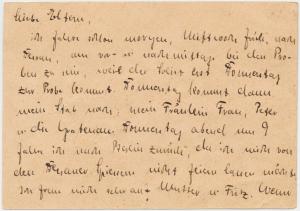 Liebe Eltern,
ich fahre schon morgen, Mittwoch früh, nach
am vor- u nachmittag bei den Pro-
ben zu sein, weil der erst Donnerstag
zur Probe kommt. Donnerstag kommt dann
mein Stab nach: mein Fräulein Frau, Peter
u die Donnerstag abend um 9
fahre ich nach Berlin zurück, da ich nicht von
den nicht feiern lassen möchte.
Ich freue mich sehr auf Mutter u Fritz. Wenn